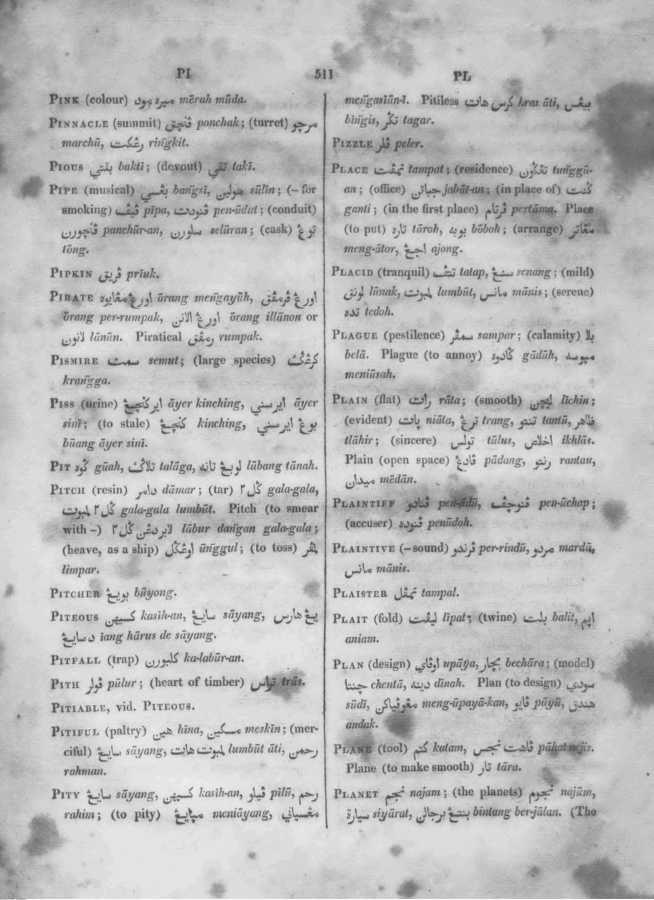 PI 511 PL
PINK (colour) ميره مود mērah mūda.
PINNACLE (summit) ponchak; (turret)
marchū, ringkit.
PIOUS بقتي bakti; (devout) تقي takī.
PIPE (musical) بڠسي bangsī, سولين sūlin; (– for
smoking) pīpa, pen-ūdut; (conduit)
panchūr-an, سلورن selūran; (cask) توڠ
tōng.
PIPKIN prīuk.
PIRATE ōrang mengayūh,
ōrang per-rumpak, ōrang illānon or
لانون lānūn. Piratical رمڤق rumpak.
PISMIRE سمت semut; (large species)
krangga.
PISS (urine) āyer kinching, اير سني āyer
sinī; (to stale) kinching, بوڠ اير سني
būang āyer sini.
PIT gūah, talāga, لوبڠ تانه lūbang tānah.
PITCH (resin) دامر dāmar; (tar) gala-gala,
gala-gala lumbūt. Pitch (to smear
with –) lābur dangan gala-gala;
(heave, as a ship) ūnggul; (to toss)
limpar.
PITCHER بويڠ būyong.
PITEOUS كسيهن kasīh-an, سايڠ sāyang,
iang hārus de sāyang.
PITFALL (trap) كلبورن ka-labūr-an.
PITH pūlur; (heart of timber) تراس trās.
PITIABLE, vid. PITEOUS.
PITIFUL (paltry) هين hīna, مسكين meskīn; (mer-
ciful) سايڠ sāyang, لمبوت هات lumbūt āti, رحمن
rahman.
PITY سايڠ sāyang, كسيهن kasīh-an, pīlū, رحم
rahim; (to pity) meniāyang,
mengasiān-ī. Pitiless كرس هات kras āti,
bingis, tagar.
PIZZLE peler.
PLACE تمڤت tampat; (residence) tunggū-
an; (office) جباتن jabāt-an; (in place of)
ganti; (in the first place) ڤرتام pertāma. Place
(to put) تاره tāroh, بوبه bōboh; (arrange)
meng-ātor, ajong.
PLACID (tranquil) tatap, سنڠ senang; (mild)
lūnak, لمبوت lumbūt, مانس mānis; (serene)
تده tedoh.
PLAGUE (pestilence) سمڤر sampar; (calamity) بلا
belā. Plague (to annoy) gādūh,
meniūsah.
PLAIN (flat) رات rāta; (smooth) ليچن līchin;
(evident) پات niāta, ترڠ trang, تنتو tantū, ظاهر
tlāhir; (sincere) تولس tūlus, اخلاص ikhlās.
Plain (open space) ڤادڠ pādang, rantau,
ميدان mēdān.
PLAINTIFF pen-ādū, pen-ūchap;
(accuser) penūdoh.
PLAINTIVE (–sound) per-rindū, مردو mardū,
مانس mānis.
PLAISTER تمڤل tampal.
PLAIT (fold) ليڤت līpat; (twine) بلت balit,
aniam.
PLAN (design) upāya, بچار bechāra; (model)
chentā, دينه dīnah. Plan (to design) سودي
sūdī, meng-ūpayā-kan, pāyū,
andak.
PLANE (tool) كتم katam, pāhat nejis.
Plane (to make smooth) تار tāra.
PLANET نجم najam; (the planets) نجوم najūm,
سيارة siyārat, بنتڠ برجالن bintang ber-jālan. (The